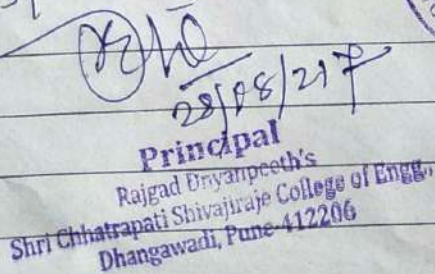 28/08/217
Principal
Rajgad Dnyanpeeth's
Shri Chhatrapati Shivajiraje College of Engg.,
Dhangawadi, Pune-412206